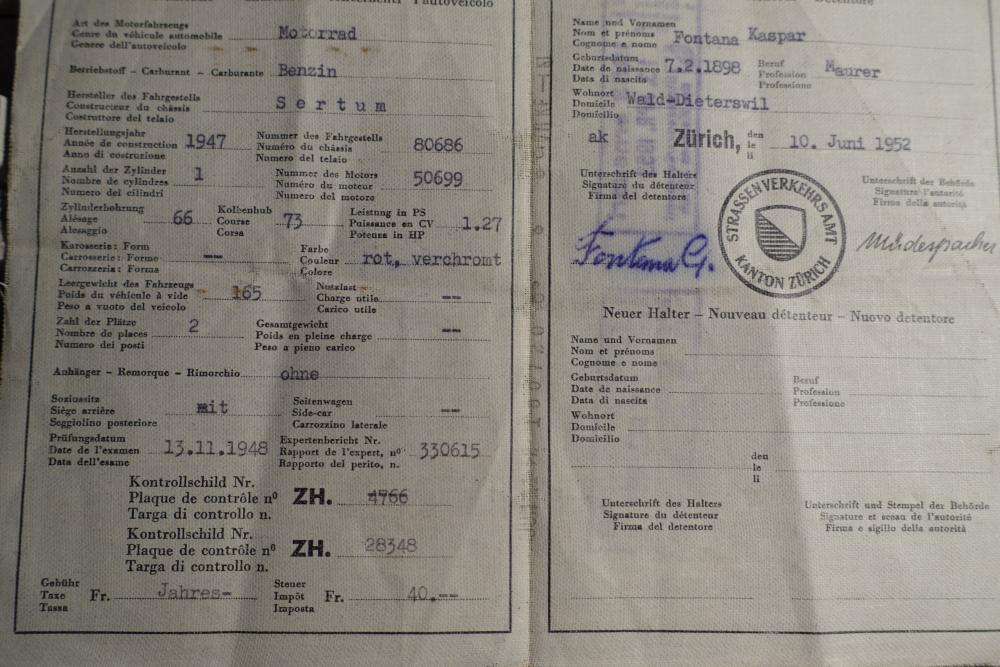 l'autoveicolo
Art des Motorfahrzeugs
Genre du véhicule automobile Motorrad
Genere dell'autoveicolo
Betriebstoff – Carburant – Carburante Benzin
Hersteller des Fahrgestells
Constructeur du châssis Sertum
Costruttore del telaio
Herstellungsjahr Nummer des Fahrgestells
Année de construction 1947 Numéro du châssis 80686
Anno di costruzione Numero del telaio
Anzahl der Zylinder Nummer des Motors
Nombre de cylindres 1 Numéro du moteur 50699
Numero dei cilindri Numero del motore
Zylinderbohrung Kolbenhub Leistung in PS
Alésage 66 Course 73 Puissance en CV 1.27
Alesaggio Corsa Potenza in HP
Karosserie: Form Farbe
Carrosserie: Forme -- Couleur rot, verchromt
Carrozzeria: Forma Colore
Leergewicht des Fahrzeugs Nutzlast
Poids du véhicule à vide 165 Charge utile --
Peso a vuoto del veicolo Carico utile
Zahl der Plätze Gesamtgewicht
Nombre de places 2 Poids en pleine charge --
Numero dei posti Peso a pieno carico
Anhänger – Remorque – Rimorchio ohne
Soziussitz Seitenwagen
Siège arrière mit Side-car --
Seggiolino posteriore Carrozzino laterale
Prüfungsdatum Expertenbericht Nr.
Date de l'examen 13.11.1948 Rapport de l'expert, nº 330615
Data dell'esame Rapporto del perito, n.
Kontrollschild Nr.
Plaque de contrôle nº ZH. 4766
Targa di controllo n.
Kontrollschild Nr.
Plaque de contrôle nº ZH. 28348
Targa di controllo n.
Gebühr Steuer
Taxe Fr. Jahres- Impôt Fr. 40.--
Tassa Imposta
Name und Vornamen
Nom et prénoms Fontana Kaspar
Cognome e nome
Geburtsdatum Beruf
Date de naissance 7.2.1898 Profession Maurer
Data di nascita Professione
Wohnort
Domicile Wald-Dieterswil
Domicilio
ak Zürich, den 10. Juni 1952
le
li
Unterschrift des Halters Unterschrift der Behörde
Signature du détenteur Signature de l'autorité
Firma del detentore Firma della autorità
Fontana G.
STRASSENVERKEHRSAMT
KANTON ZÜRICH
Neuer Halter – Nouveau détenteur – Nuovo detentore
Name und Vornamen
Nom et prénoms
Cognome e nome
Geburtsdatum Beruf
Date de naissance Profession
Data di nascita Professione
Wohnort
Domicile
Domicilio
den
le
li
Unterschrift des Halters Unterschrift und Stempel der Behörde
Signature du détenteur Signature et sceau de l'autorité
Firma del detentore Firma e sigillo della autorità